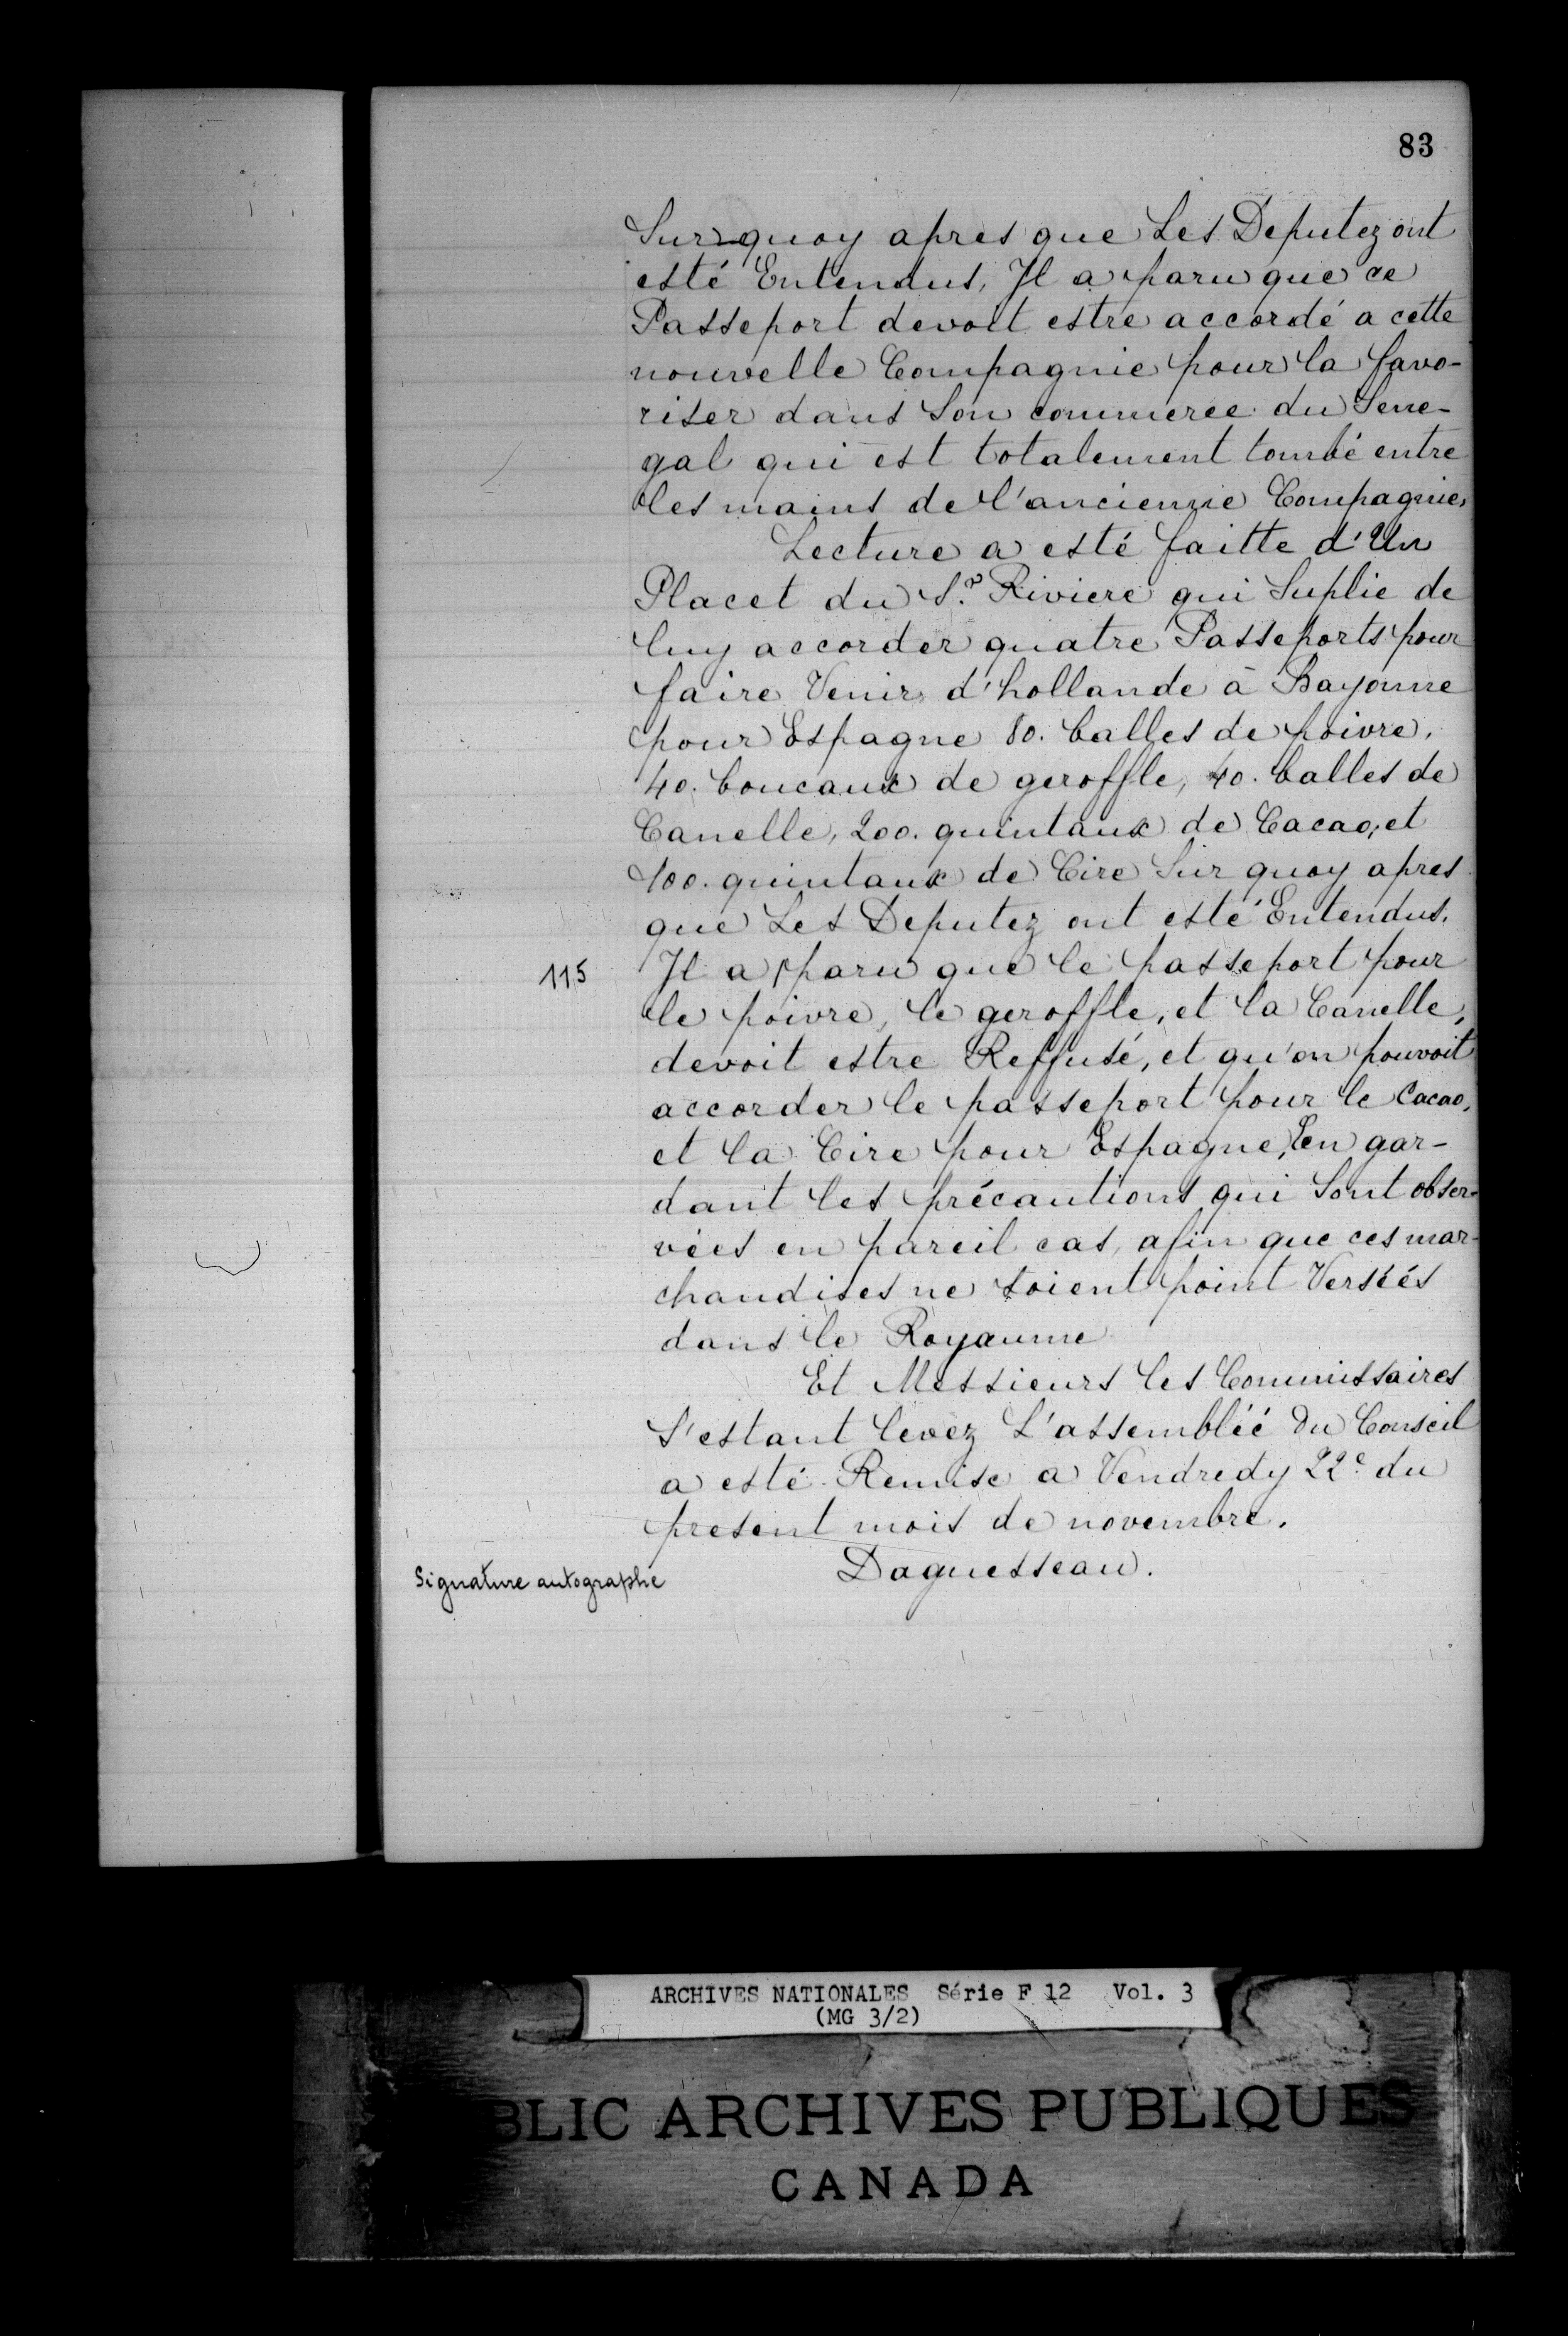 83
Sur quoy apres que Les Deputez ont
esté Entendus, Il a paru que ce
Passeport devoit estre accordé a cette
nouvelle Compagnie pour la favo-
riser dans Son commerce du Sene-
gal qui est totalement tombé entre
les mains de l'ancienne Compagnie,
Lecture a esté faitte d'Un
Placet du S.r Riviere qui Suplie de
luy accorder quatre Passeports pour
faire Venir d'hollande à Bayonne
pour Espagne 80. balles de poivre,
40. boucaux de geroffle, 40. balles de
Canelle, 200. quintaux de Cacao, et
100. quintaux de Cire Sur quoy apres
que Les Deputez ont esté Entendus,
115 Il a paru que le passeport pour
le poivre, le geroffle, et la Canelle,
devoit estre Reffusé, et qu'on pouvoit
accorder le passeport pour le Cacao,
et la Cire pour Espagne, en gar-
dant les précautions qui Sont obser-
vées en pareil cas, afin que ces mar-
chandises ne soient point Versées
dans le Royaume
Et Messieurs les Commissaires
S'estant levez L'assemblée du Conseil
a esté Remise a Vendredy 22e. du
present mois de novembre.
Signature autographe Daguesseau.
ARCHIVES NATIONALES Série F 12 Vol. 3
(MG 3/2)
BLIC ARCHIVES PUBLIQUES
CANADA